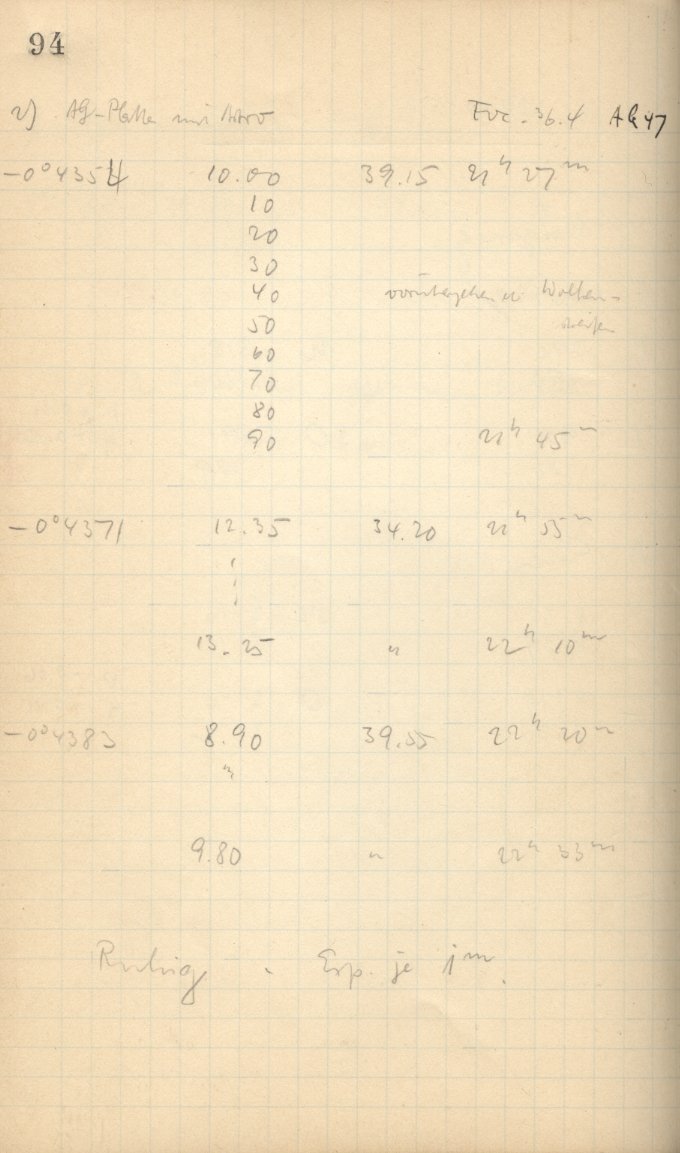 94
2) AG-Platten mit Astro Foc. 36.4 AG 47
-0°4354 10.00 39.15 21h 27m
10
20
30
40 vorübergehend Wolken-
50
60
70
80
90 21h 45m
-0°4371 12.35 34.20 21h 55m
13.25 " 22h 10m
-0°4383 8.90 39.55 22h 20m
"
9.80 " 22h 33m
Ruhig. Exp. je 1m.